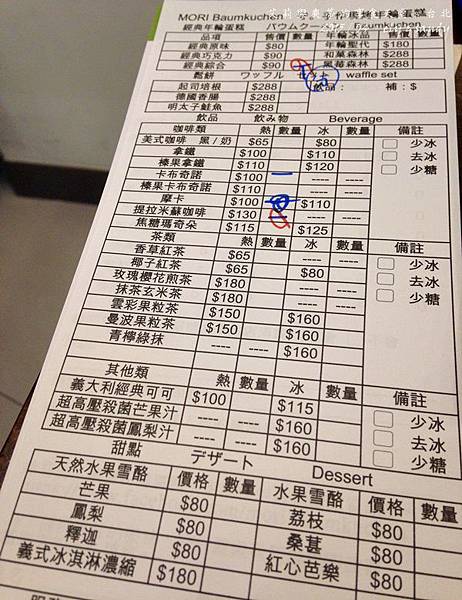 MORI Baumkuchen 年輪蛋糕
經典年輪蛋糕 バウムクーヘン Baumkuchen
品項 售價 數量 年輪冰品 售價 數量
經典原味 $80 年輪聖代 $180
經典巧克力 $90 和菓森林 $288
經典綜合 $90 黑莓森林 $288
鬆餅 ワッフル waffle set
起司培根 $288 飲品： 補：$
德國香腸 $288
明太子鮭魚 $288
飲品 飲み物 Beverage
咖啡類 熱 數量 冰 數量 備註
美式咖啡 黑/奶 $65 $80 少冰
拿鐵 $100 $110 去冰
榛果拿鐵 $110 $120 少糖
卡布奇諾 $100 ---- ----
榛果卡布奇諾 $110 ---- ----
摩卡 $100 $110
提拉米蘇咖啡 $130 ---- ----
焦糖瑪奇朵 $115 $125
茶類 熱 數量 冰 數量 備註
香草紅茶 $65 ---- ---- 少冰
椰子紅茶 $65 $80 去冰
玫瑰櫻花煎茶 $180 ---- ---- 少糖
抹茶玄米茶 $180 ---- ----
雲彩果粒茶 $150 $160
曼波果粒茶 $150 $160
青檸綠抹 ---- ---- $160
其他類 熱 數量 冰 數量 備註
義大利經典可可 $100 $115 少冰
超高壓殺菌芒果汁 ---- ---- $160 去冰
超高壓殺菌鳳梨汁 ---- ---- $160 少糖
甜點 デザート Dessert
天然水果雪酪 價格 數量 水果雪酪 價格 數量
芒果 $80 荔枝 $80
鳳梨 $80 桑葚 $80
釋迦 $80 紅心芭樂 $80
義式冰淇淋濃縮 $180